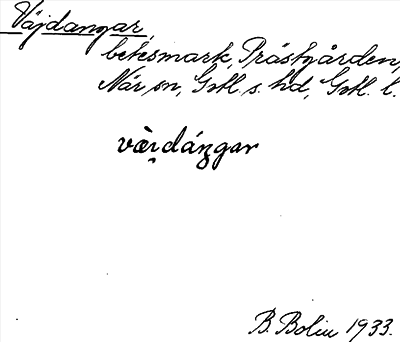 Väjdangar,
betesmark, Prästgården,
När sn, Gotl. s. hd, Gotl. l.
væ̀i̯dáŋgar
B. Bolin 1933.